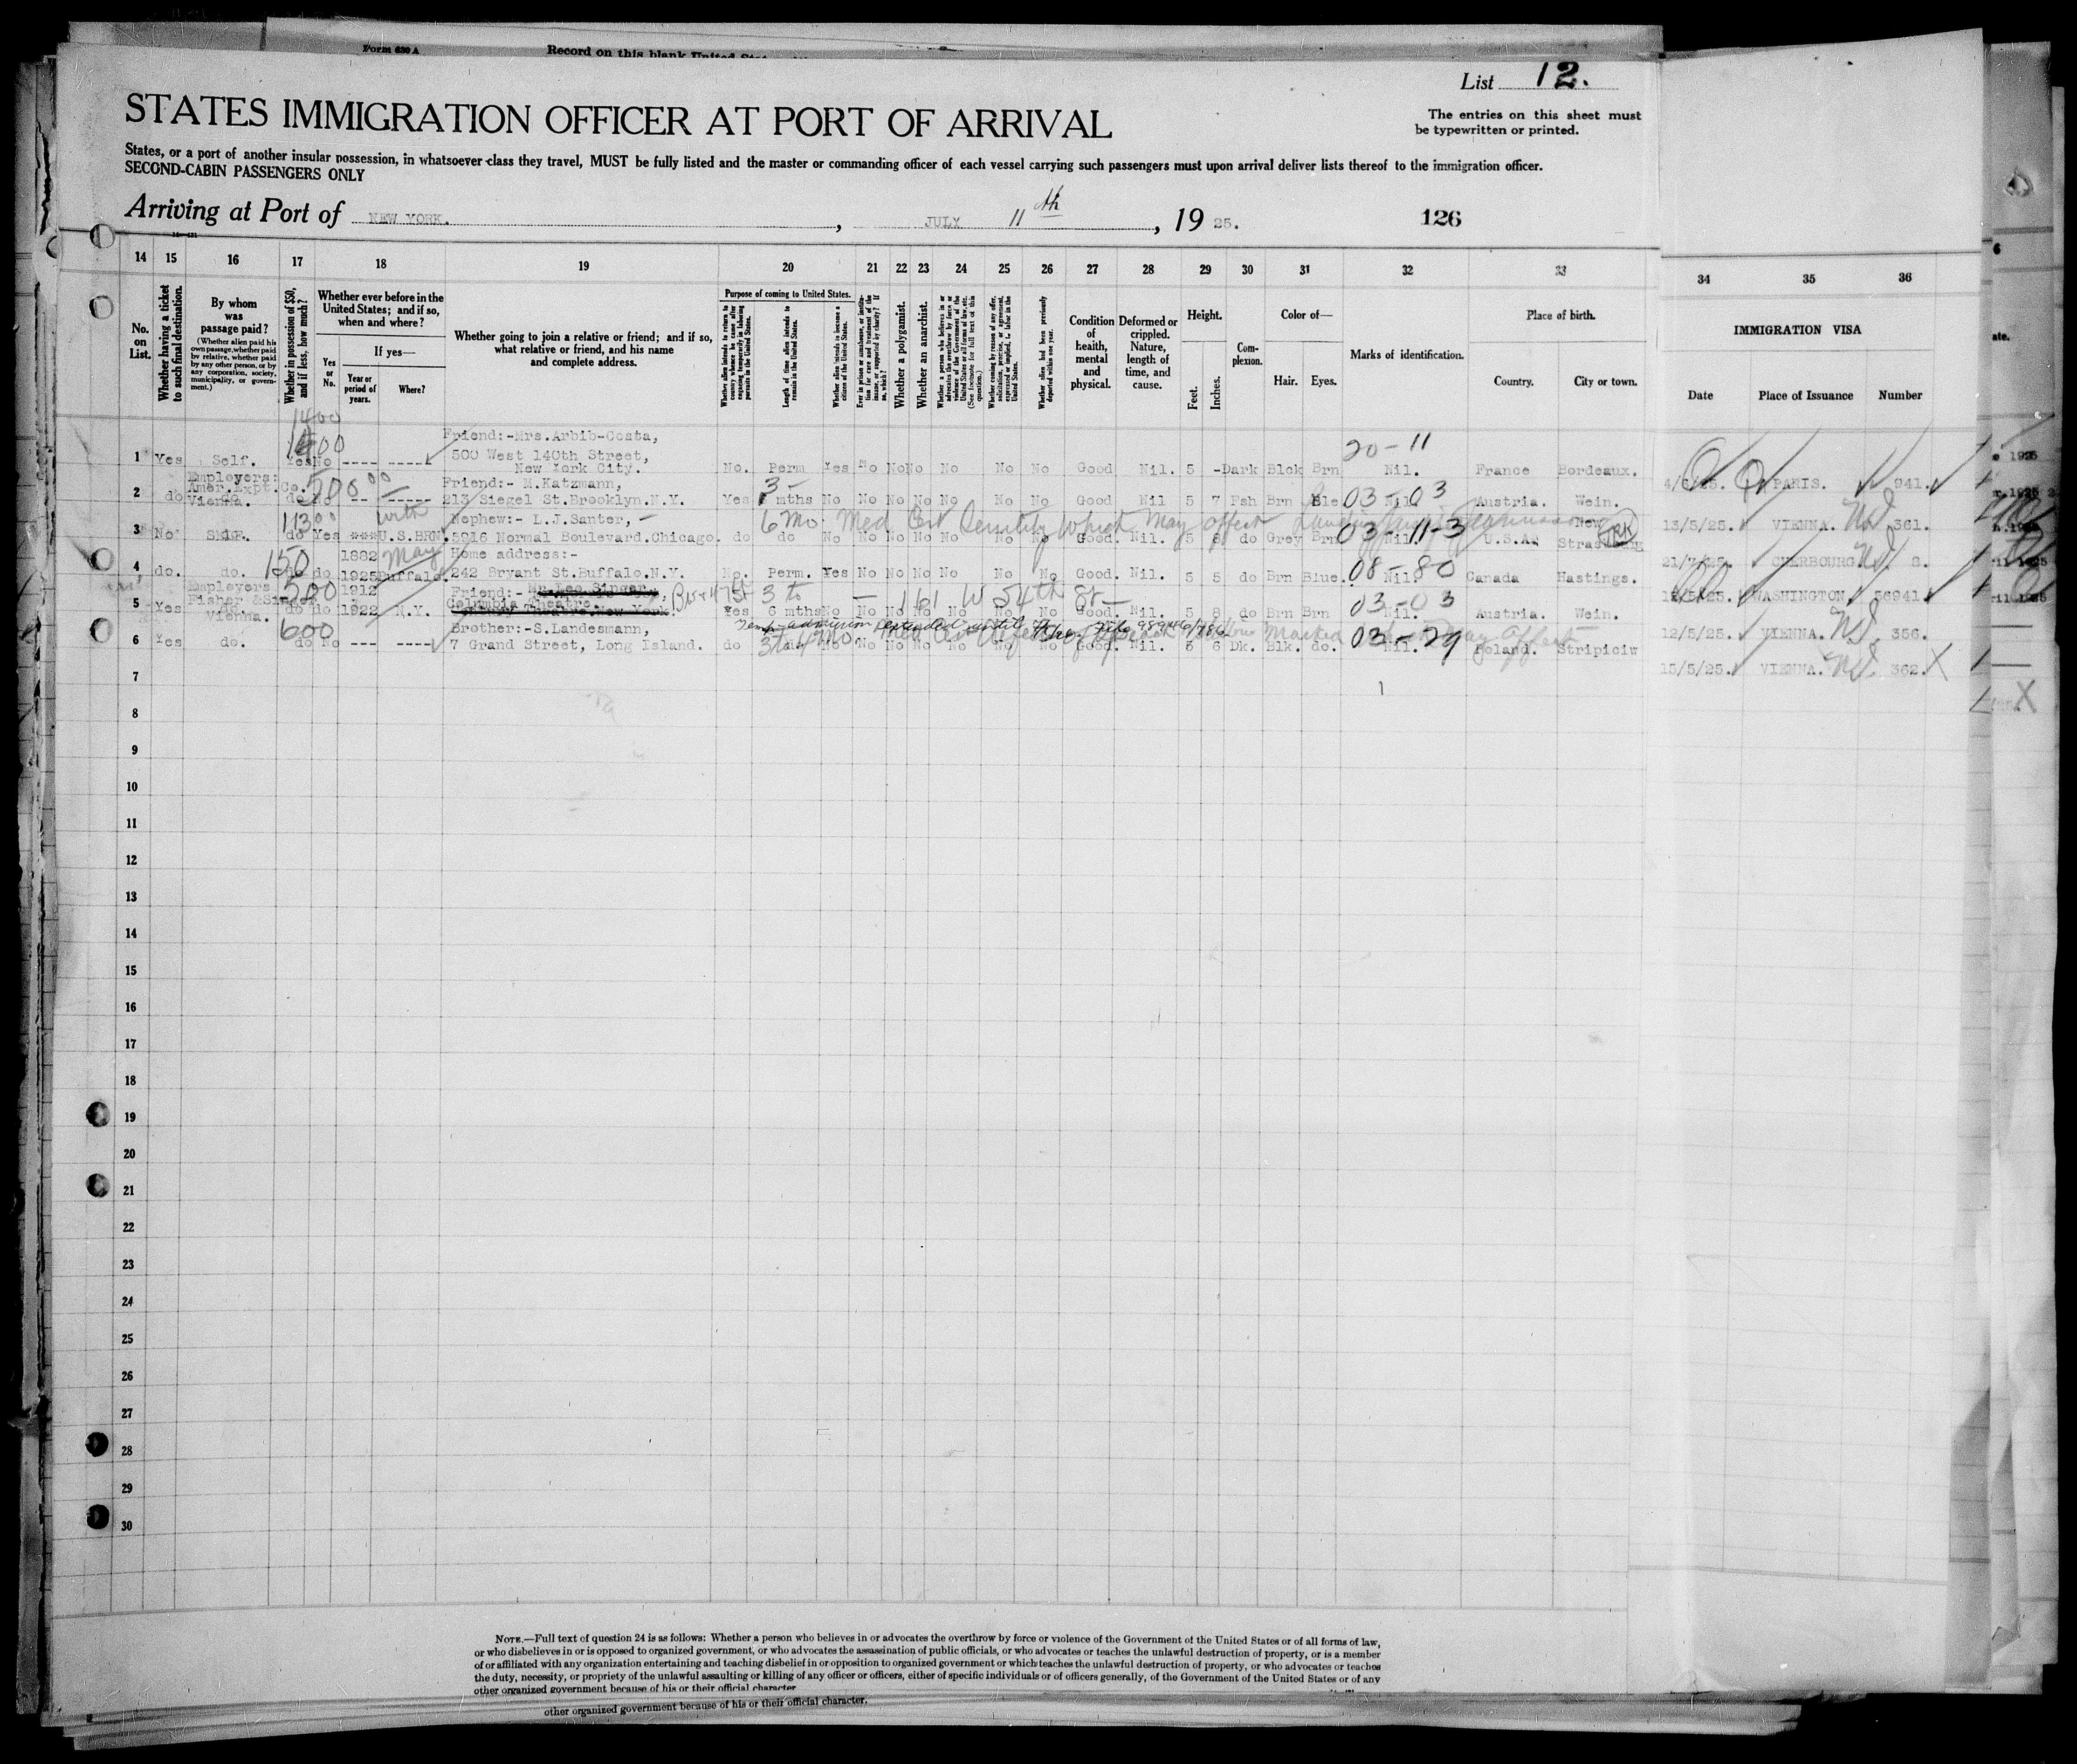 Form 630 A Record on this blank United
List 12.
STATES IMMIGRATION OFFICER AT PORT OF ARRIVAL
The entries on this sheet must
be typewritten or printed.
States, or a port of another insular possession, in whatsoever class they travel, MUST be fully listed and the master or commanding officer of each vessel carrying such passengers must upon arrival deliver lists thereof to the immigration officer.
SECOND-CABIN PASSENGERS ONLY
Arriving at Port of NEW YORK. , JULY 11th , 19 25. 126
14 15 16 17 18 19 20 21 22 23 24 25 26 27 28 29 30 31 32 33 34 35 36
No. on List.
Whether having a ticket to such final destination.
By whom was passage paid?
(Whether alien paid his own passage, whether paid by relative, whether paid by any other person, or by any corporation, society, municipality, or government.)
Whether in possession of $50, and if less, how much?
Whether ever before in the United States; and if so, when and where?
Yes or No.
If yes—
Year or period of years.
Where?
Whether going to join a relative or friend; and if so, what relative or friend, and his name and complete address.
Purpose of coming to United States.
Length of time alien intends to remain in the United States.
Whether alien intends to become a citizen of the United States.
Whether a polygamist.
Whether an anarchist.
Whether alien had been previously deported within one year.
Condition of health, mental and physical.
Deformed or crippled. Nature, length of time, and cause.
Height.
Feet. Inches.
Complexion.
Color of—
Hair. Eyes.
Marks of identification.
Place of birth.
Country. City or town.
IMMIGRATION VISA
Date Place of Issuance Number
1400
Friend:-Mrs.Arbib-Costa,
500 West 140th Street,
New York City.
20-11
1 Yes Self. Yes No ---- ---- No. Perm Yes No No No No No No Good Nil. 5 - Dark Blck Brn Nil. France Bordeaux. 4/6/25. PARIS. 941.
Employers:
Amer.Expt.Co.
Vienna.
500 00
Friend:- M.Katzmann,
213 Siegel St.Brooklyn.N.Y.
3-
03-03
2 do do. do No -- ----- Yes mths No No No No No No No Good Nil 5 7 Fsh Brn Ble Nil. Austria. Wein. 13/5/25. VIENNA. 361.
113 00 with
Nephew:- L.J.Santer,
6 Mo. Med Cert Senility which may affect
3 No Self. do Yes U.S.BRN. 5916 Normal Boulevard.Chicago. do do No No No No No No No Good. Nil. 5 8 do Grey Brn Nil. U.S.A. New Strasburg 21/7/25. CHERBOURG S.
03-11-3
150 1882 May
Home address:-
4 do. do. do do 1925 Buffalo. 242 Bryant St.Buffalo.N.Y. No. Perm. Yes No No No No No No Good. Nil. 5 5 do Brn Blue. Nil Canada Hastings. WASHINGTON 56941
08-80
Employers
Vienna.
500 1912
Friend:- Mr.Leo Singer,
Columbia Theatre
3 to
1161 W 54th St-
03-03
5 Yes do. do do 1922 N.Y. Yes 6 mths No No No No No No No Good. Nil. 5 8 do Brn Brn Nil. Austria. Wein. 12/5/25. VIENNA. 356.
Temp. admission extended until
600
Brother:-S.Landesmann,
7 Grand Street, Long Island.
3 to 4 Mo
03-29
6 Yes do. do No --- ---- do No No No No No No No Good. Nil. 5 6 Dk. Blk. do. Nil. Poland. Stripiciw 15/5/25. VIENNA. 362.
7
8
9
10
11
12
13
14
15
16
17
18
19
20
21
22
23
24
25
26
27
28
29
30
NOTE.—Full text of question 24 is as follows: Whether a person who believes in or advocates the overthrow by force or violence of the Government of the United States or of all forms of law,
or who disbelieves in or is opposed to organized government, or who advocates the assassination of public officials, or who advocates or teaches the unlawful destruction of property, or is a member
of or affiliated with any organization entertaining and teaching disbelief in or opposition to organized government or which teaches the unlawful destruction of property, or who advocates or teaches
the duty, necessity, or propriety of the unlawful assaulting or killing of any officer or officers, either of specific individuals or of officers generally, of the Government of the United States or of any
other organized government because of his or their official character
other organized government because of his or their official character.